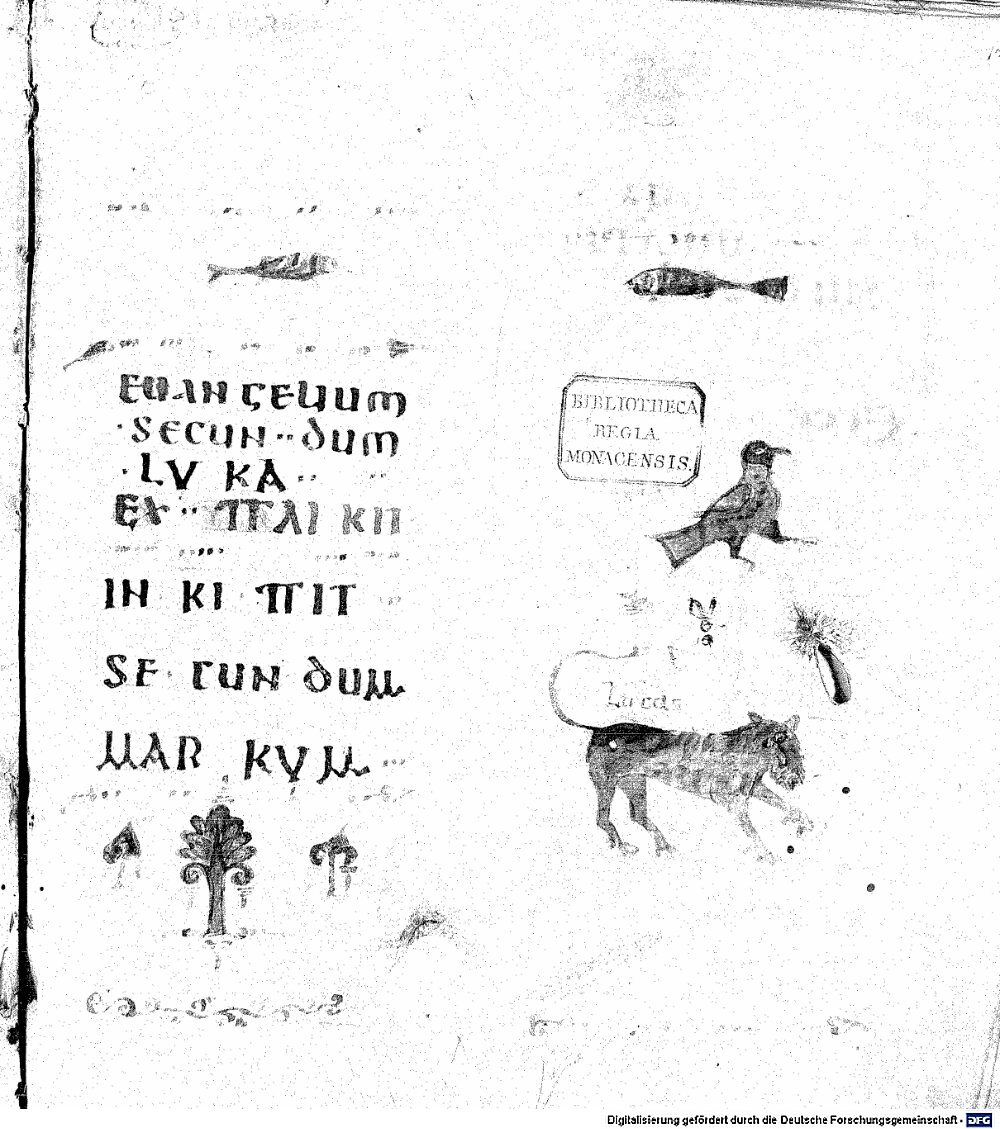 EUANGELIUM
·SECUN··DUM
·LV KA··
EX··ΠΛI KII
IN KI ΠIT
SE CUN DUM
MAR KVM···
BIBLIOTHECA
REGIA
MONACENSIS.
Lucas
Digitalisierung gefördert durch die Deutsche Forschungsgemeinschaft - DFG